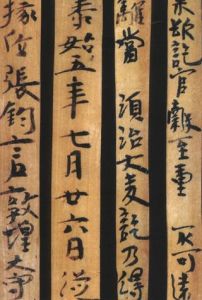 訖官穀至重 不可遠
離當 須治大麦訖乃得
泰始五年七月廿六日從
掾位張鈞言敦煌太守